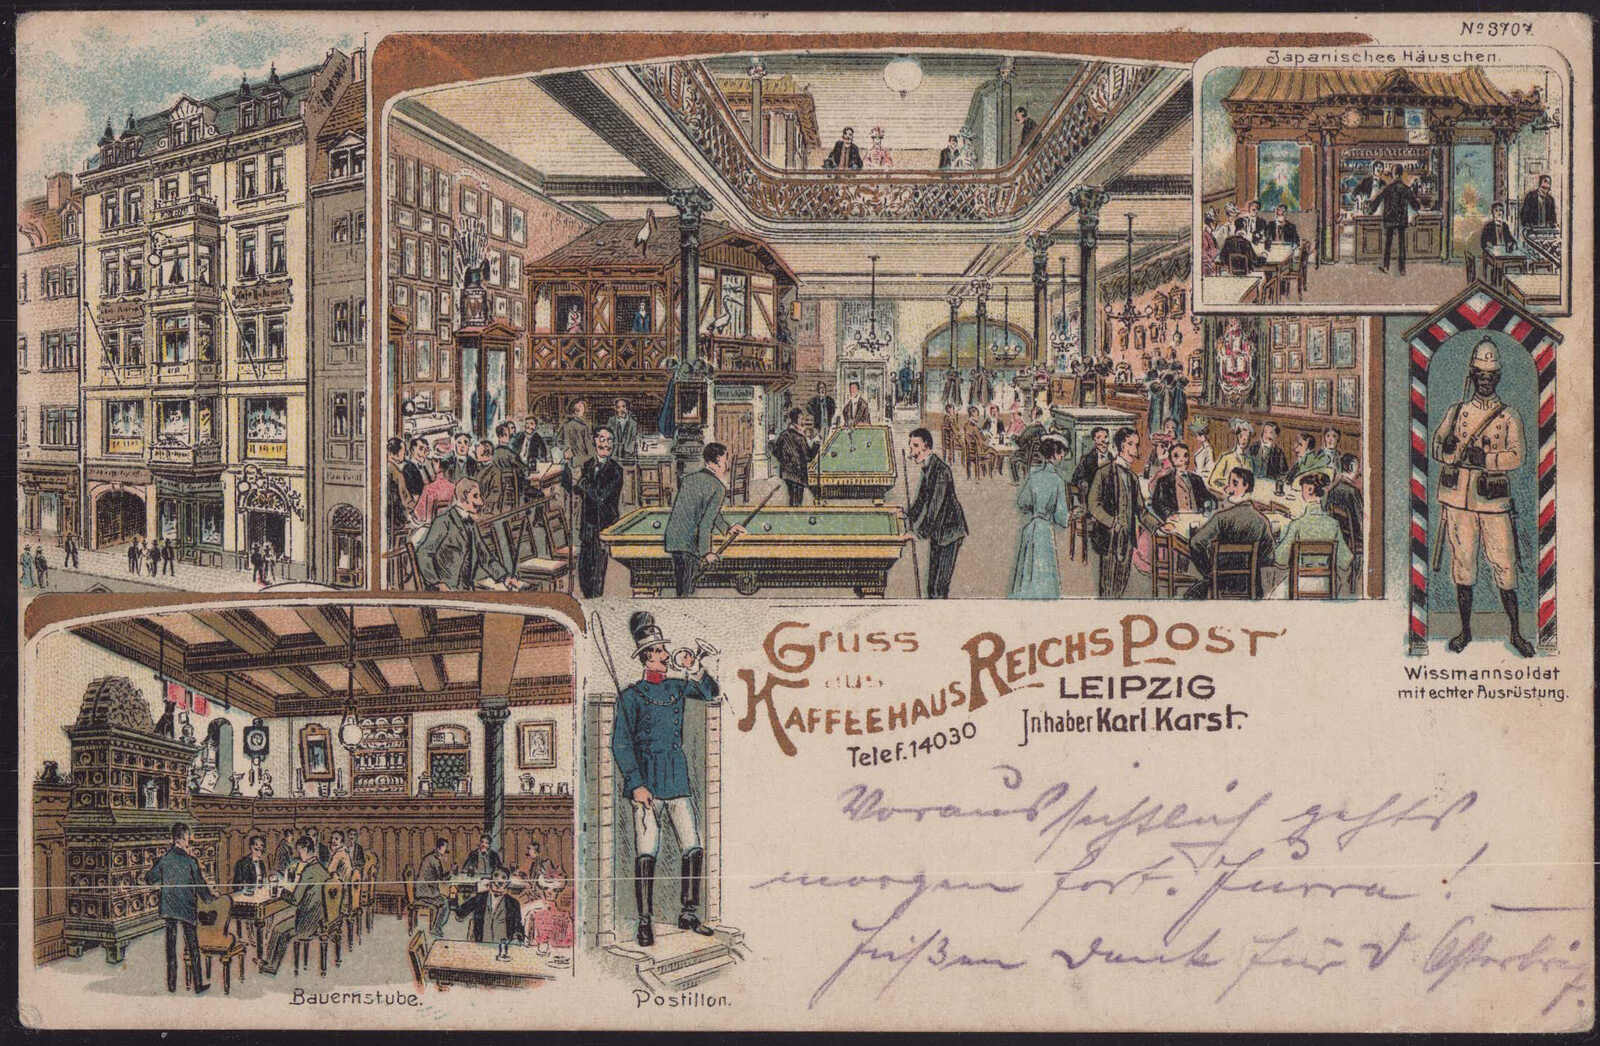 No 3707.
Japanisches Häuschen.
Wissmannsoldat
mit echter Ausrüstung.
Gruss
aus
KAFFEEHAUS REICHSPOST
LEIPZIG
Inhaber Karl Karst.
Telef. 14030
Bauernstube.
Postillon.
Voraussichtlich gehts
morgen fort. Hurra!
Süßen Dank für d